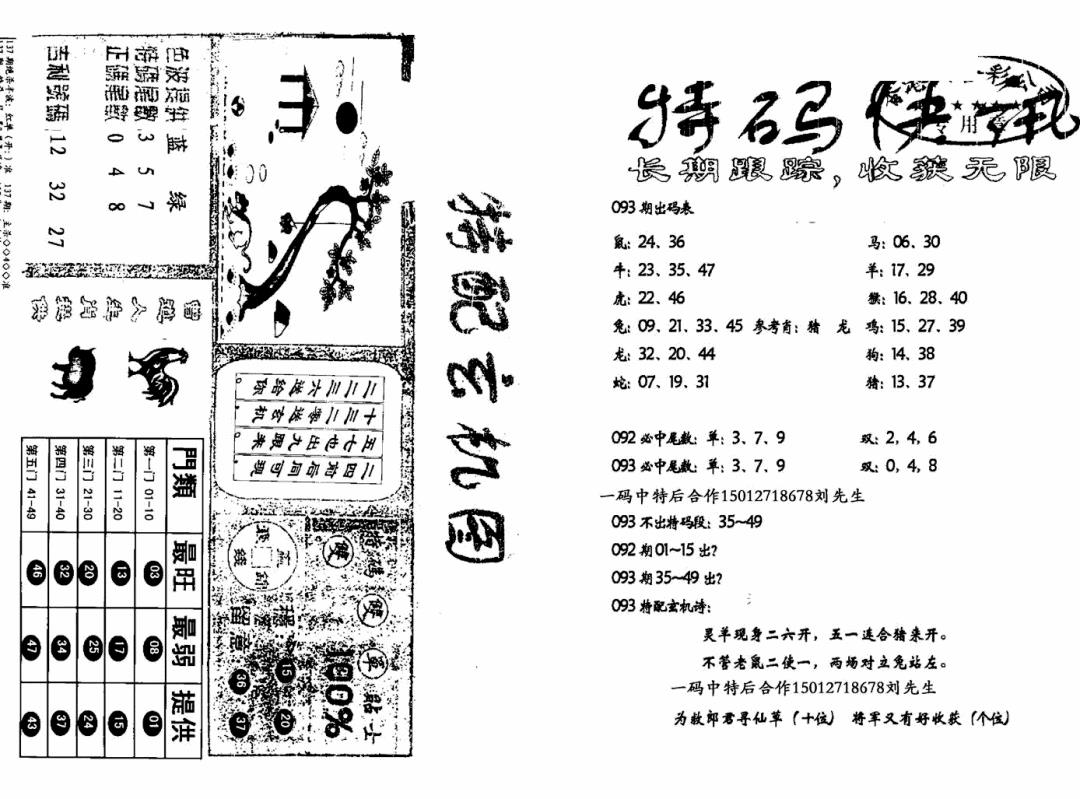 特码快讯
长期跟踪，收获无限
093 期出码表
鼠: 24、36
马: 06、30
牛: 23、35、47
羊: 17、29
虎: 22、46
猴: 16、28、40
兔: 09、21、33、45 参考肖: 猪 龙
鸡: 15、27、39
龙: 32、20、44
狗: 14、38
蛇: 07、19、31
猪: 13、37
092 必中尾数: 单: 3、7、9
双: 2, 4, 6
093 必中尾数: 单: 3、7、9
双: 0, 4, 8
一码中特后合作15012718678刘先生
093 不出特码段: 35~49
092 期 01~15 出?
093 期 35~49 出?
093 特配玄机诗:
灵羊现身二六开，五一连合猪来开。
不管老鼠二使一，两场对立兔站左。
一码中特后合作15012718678刘先生
为救郎君寻仙草（十位） 将军又有好收获（个位）
特配玄机图
色波提供 蓝 绿
特碼尾數 3 5 7
正碼尾數 0 4 8
吉利號碼 12 32 27
曾道人生肖提供
二二三三六送给你
十三二零送玄机
五七也出九跟来
二四前后同可现
門類 最旺 最弱 提供
第一门 01-10 03 08 01
第二门 11-20 13 17 15
第三门 21-30 20 25 24
第四门 31-40 32 34 37
第五门 41-49 46 47 43
特碼
雙 雙 單
貼士
100%
留意
16 20
36 37